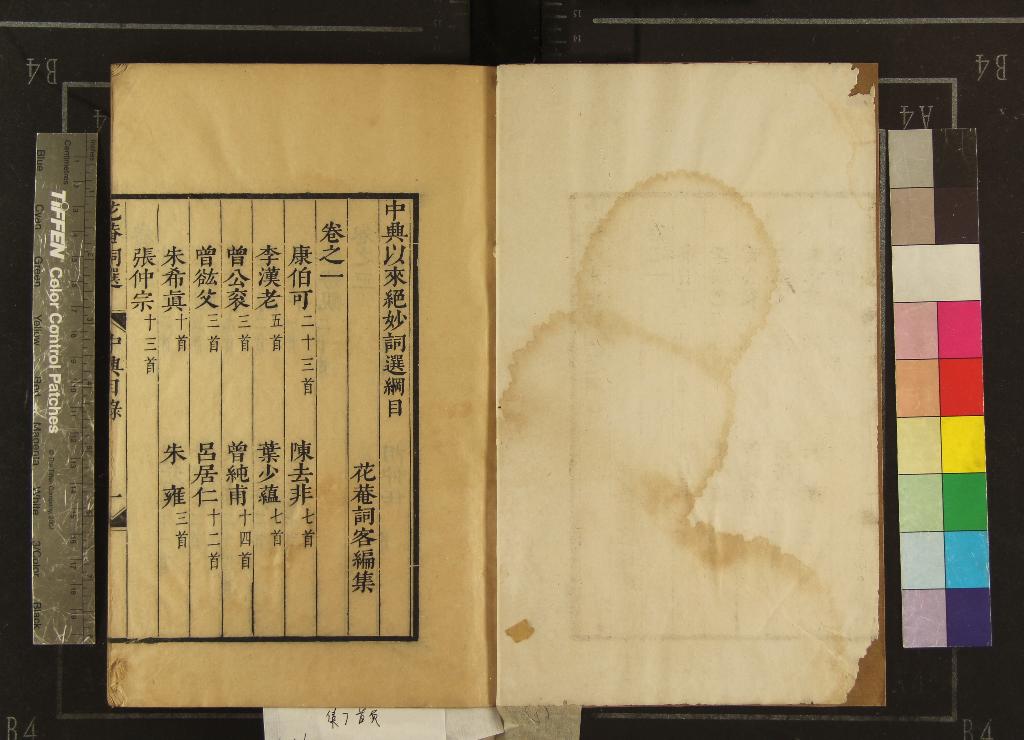 中興以來絕妙詞選綱目
花菴詞客編集
卷之一
康伯可二十三首　陳去非七首
李漢老五首　葉少蘊七首
曾公衮三首　曾純甫十四首
曾紘父三首　呂居仁十二首
朱希眞十首　朱　雍三首
張仲宗十三首
花菴詞選　中興目錄　一
TIFFEN Color Control Patches
Centimetres
Inches
Blue
Cyan
Green
Yellow
Red
Magenta
White
3/Color
Black
B4
B4
A4
B4
B4